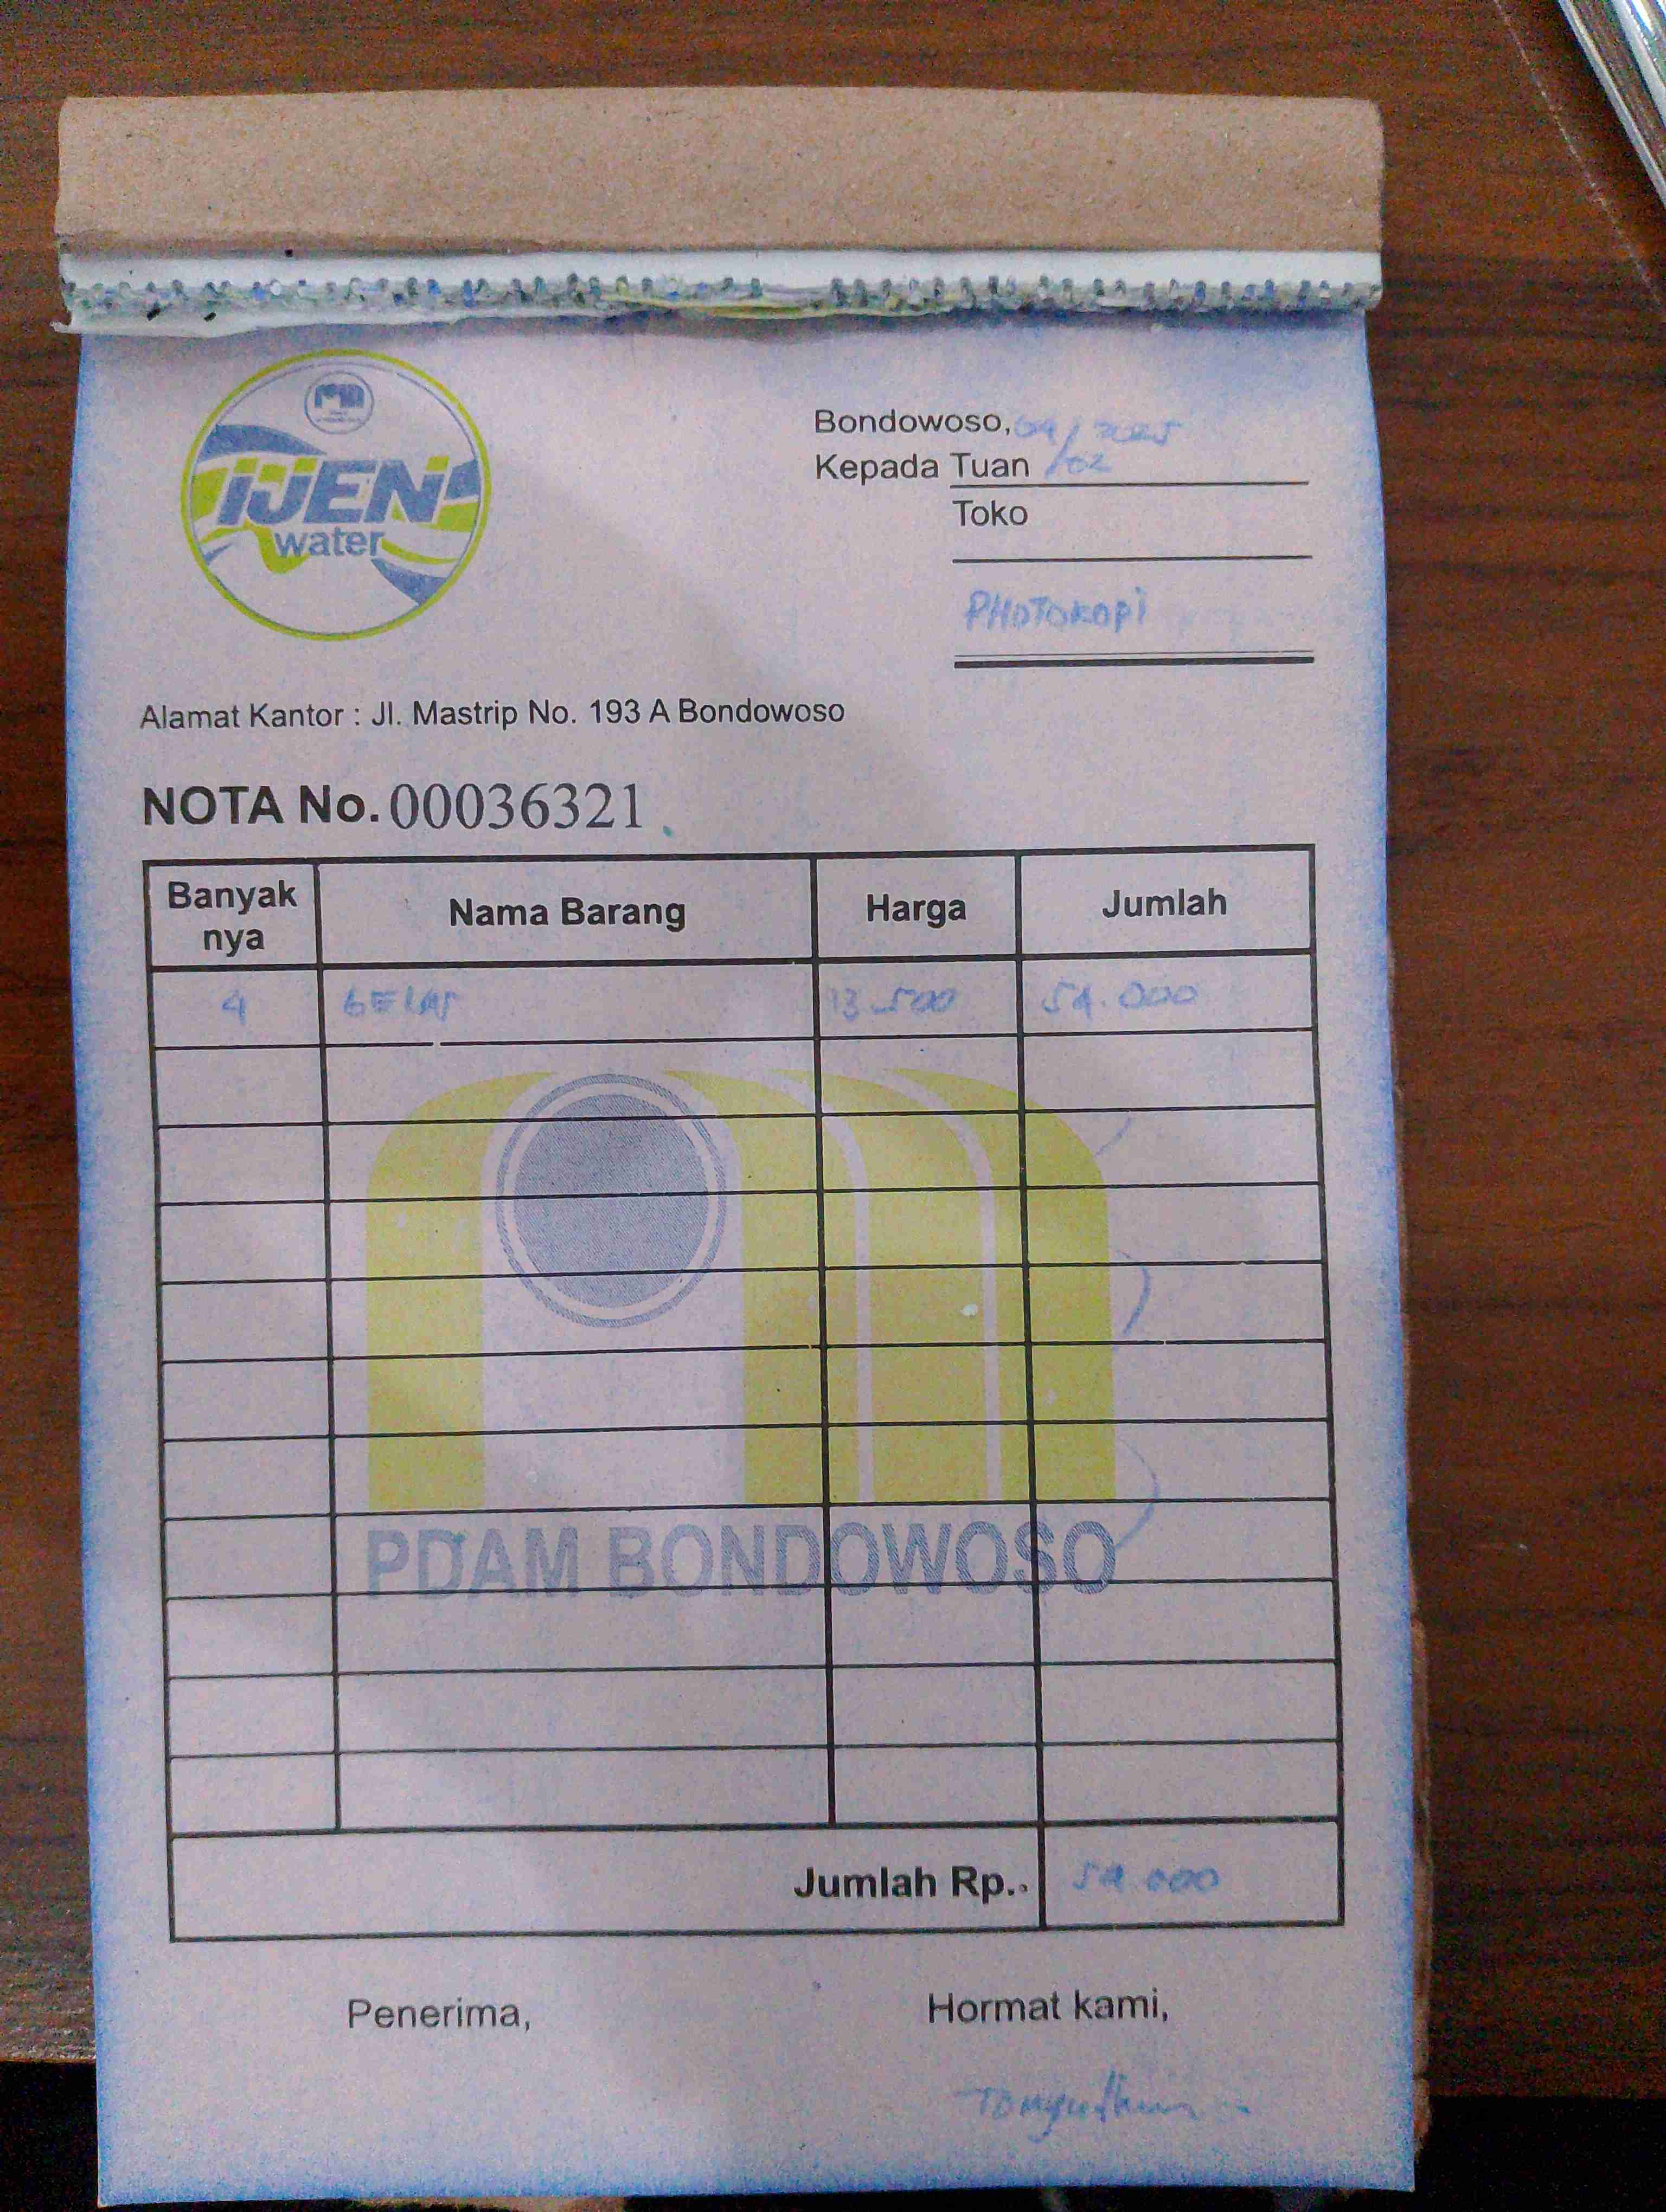 IJEN
water
Bondowoso, 04/02 2025
Kepada Tuan
Toko
PHOTOKOPi
Alamat Kantor : Jl. Mastrip No. 193 A Bondowoso
NOTA No. 00036321
Banyak nya Nama Barang Harga Jumlah
4 GELAS 13.500 54.000
PDAM BONDOWOSO
Jumlah Rp.. 54.000
Penerima, Hormat kami,